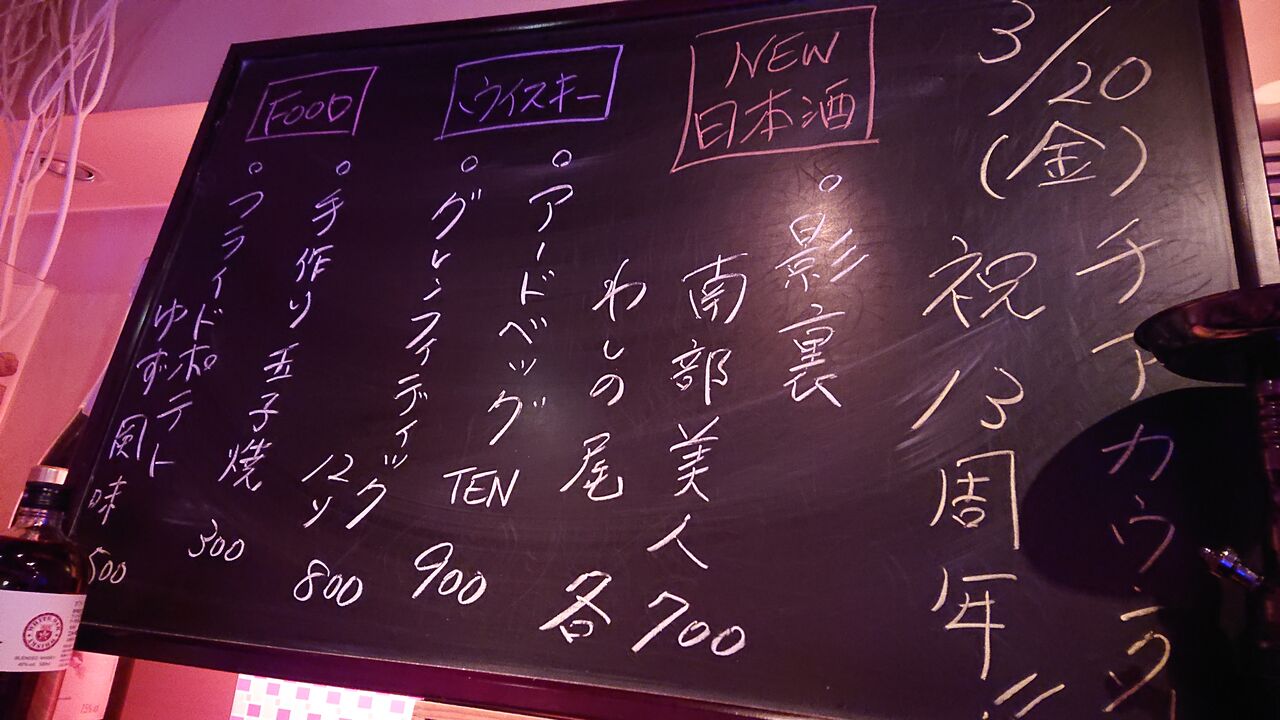 3/20
(金)チアカウラ
祝13周年!!
NEW
日本酒
○影裏
南部美人
わしの尾
各700
ウイスキー
○アードベッグ
TEN
900
○グレンフィディック
12ソ
800
FOOD
○手作り玉子焼
300
○フライドポテト
ゆず風味
500
WHITE OAK
AKASHI
BLENDED WHISKY